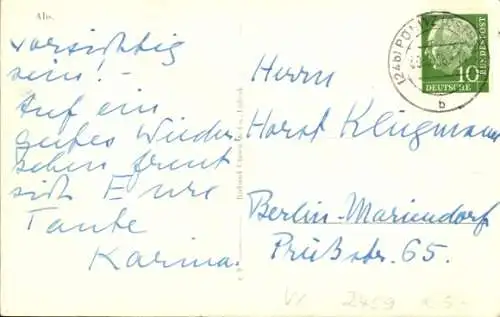 Abs.
vorsichtig
sein! –
Auf ein
gutes Wieder
sehen freut
sich Eure
Tante
Karina.
Herrn
Horst Klugmann
Berlin-Mariendorf
Prüßstr. 65.
(24b) PÖN
b
10
DEUTSCHE
BUNDESPOST